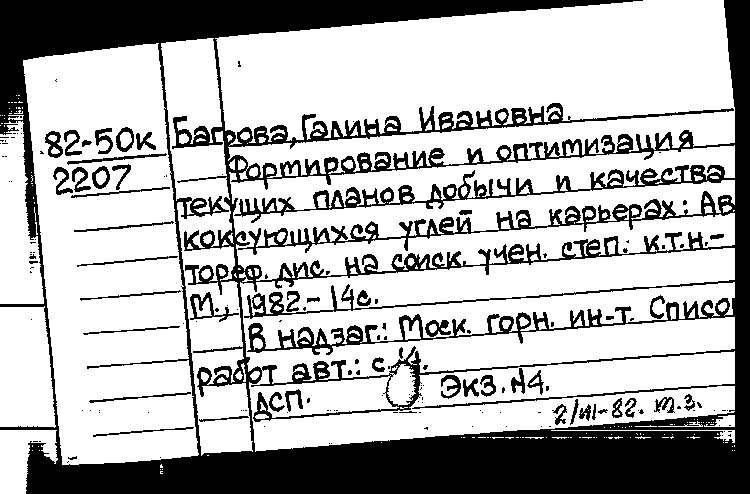 82-50к Багрова, Галина Ивановна.
2207 Фортирование и оптитизация
текущих планов добычи и качества
коксующихся углей на карьерах: Ав
тореф. дис. на соиск. учен. степ. к.т.н.-
М., 1982.- 14с.
В надзаг.: Моск. горн. ин-т. Список
работ авт.: с.
ДСП. Экз. №4.
2/VII-82. т.з.